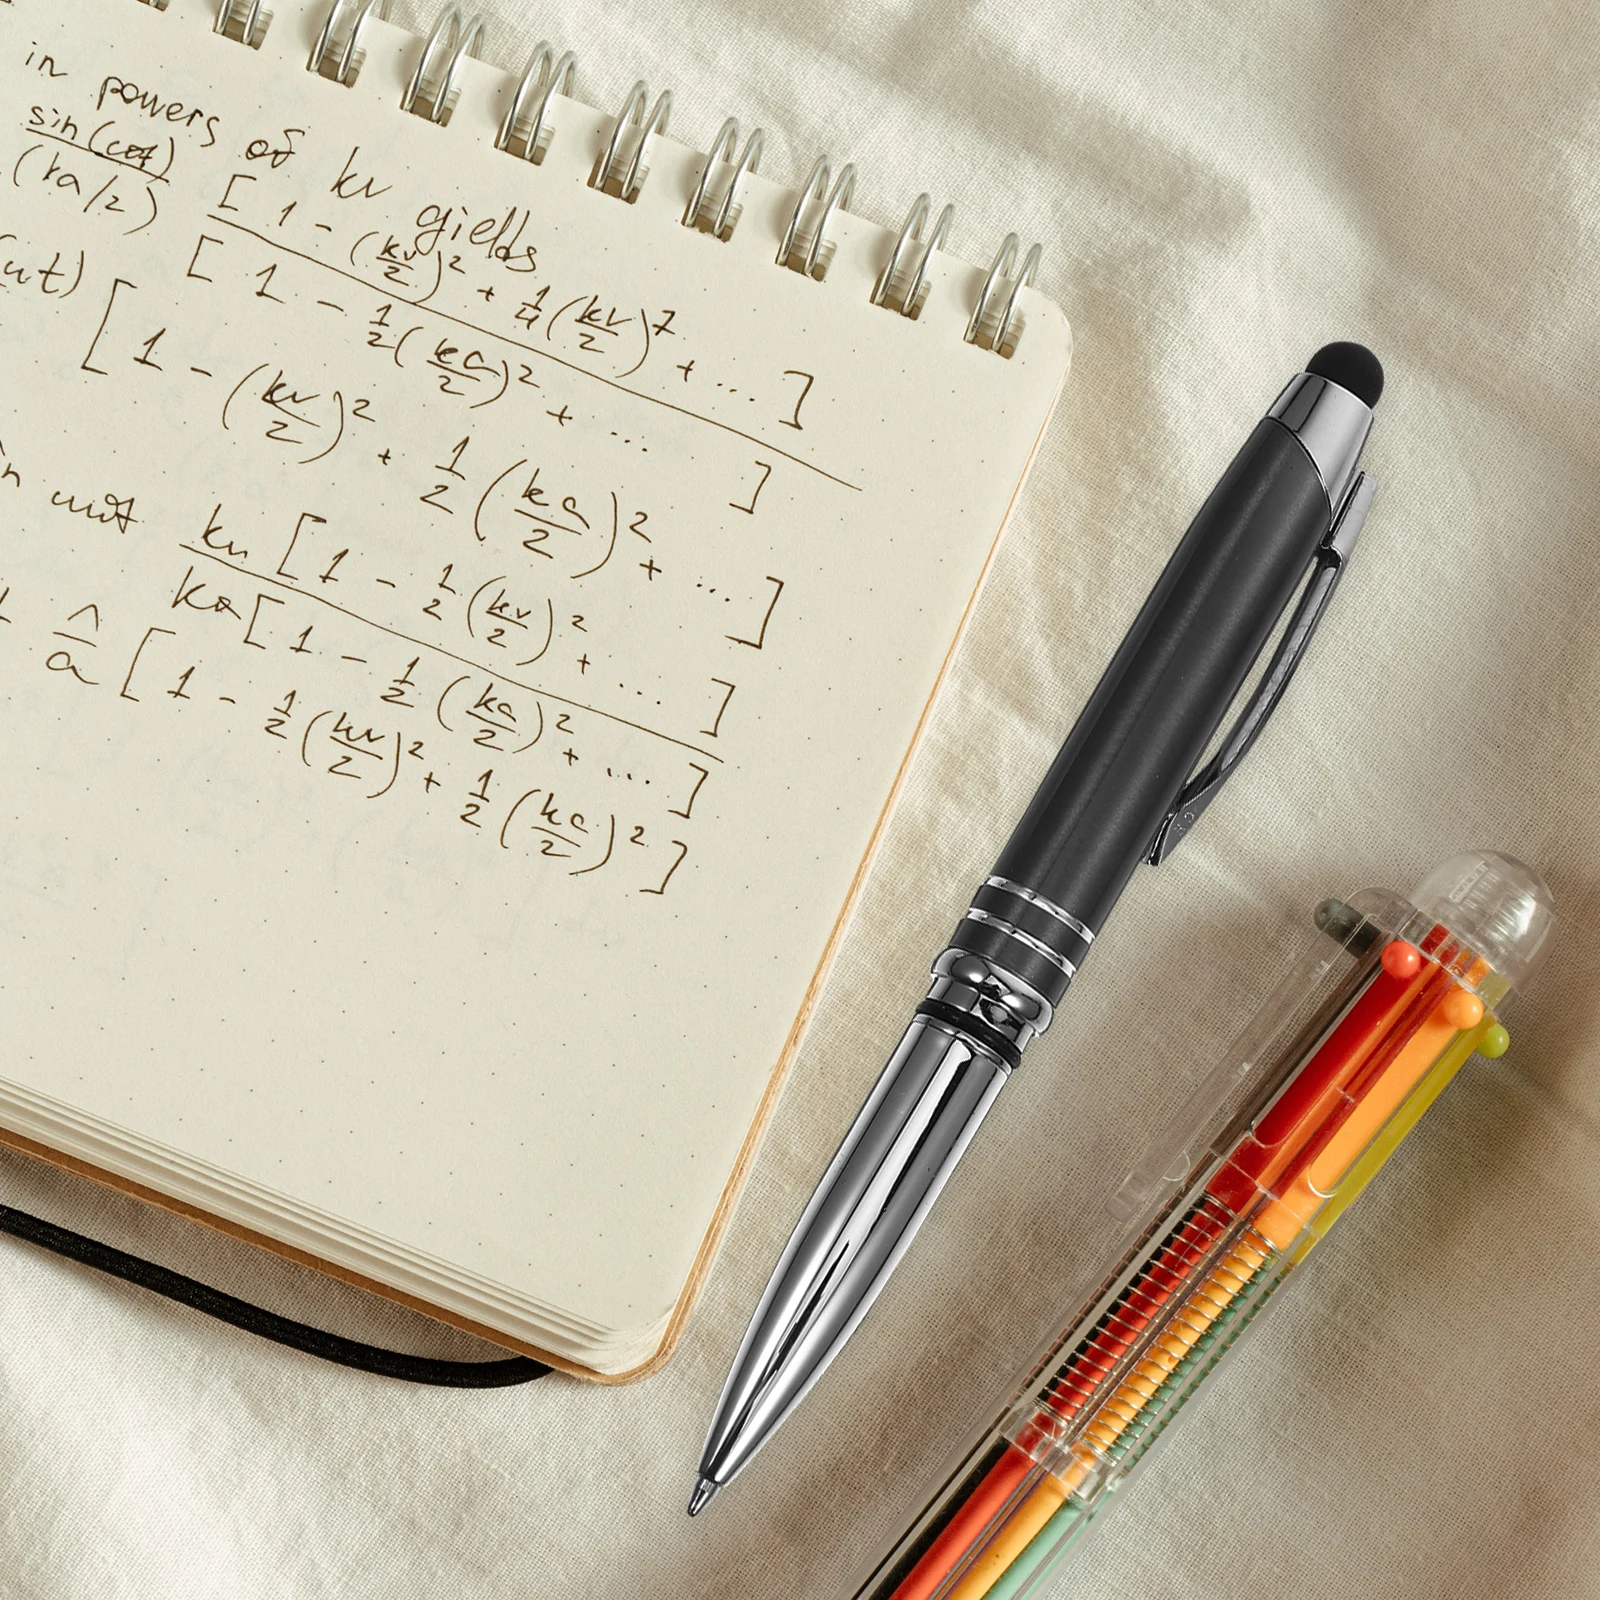 in powers of kv gields
sin(cot) [1 - (kv/2)² + 1/4 (kv/2)⁷ + ...]
(ka/2) [1 - 1/2 (ka/2)² + ... ]
(ut) [1 - (kv/2)² + 1/2 (ka/2)² + ...]
kv [1 - 1/2 (kv/2)² + ... ]
ka [1 - 1/2 (ka/2)² + ... ]
^/a [1 - 1/2 (kv/2)² + 1/2 (ka/2)²]